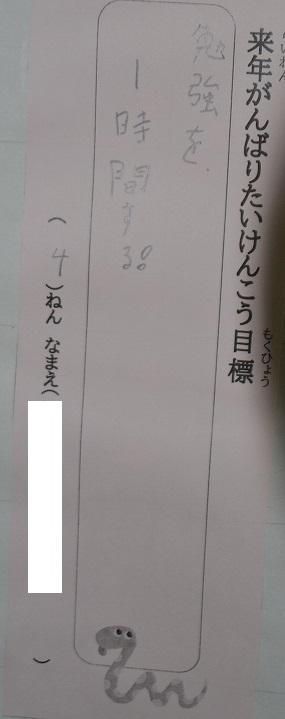 来年がんばりたいけんこう目標
もくひょう
勉強を
1時間する。
(4)ねん なまえ( )